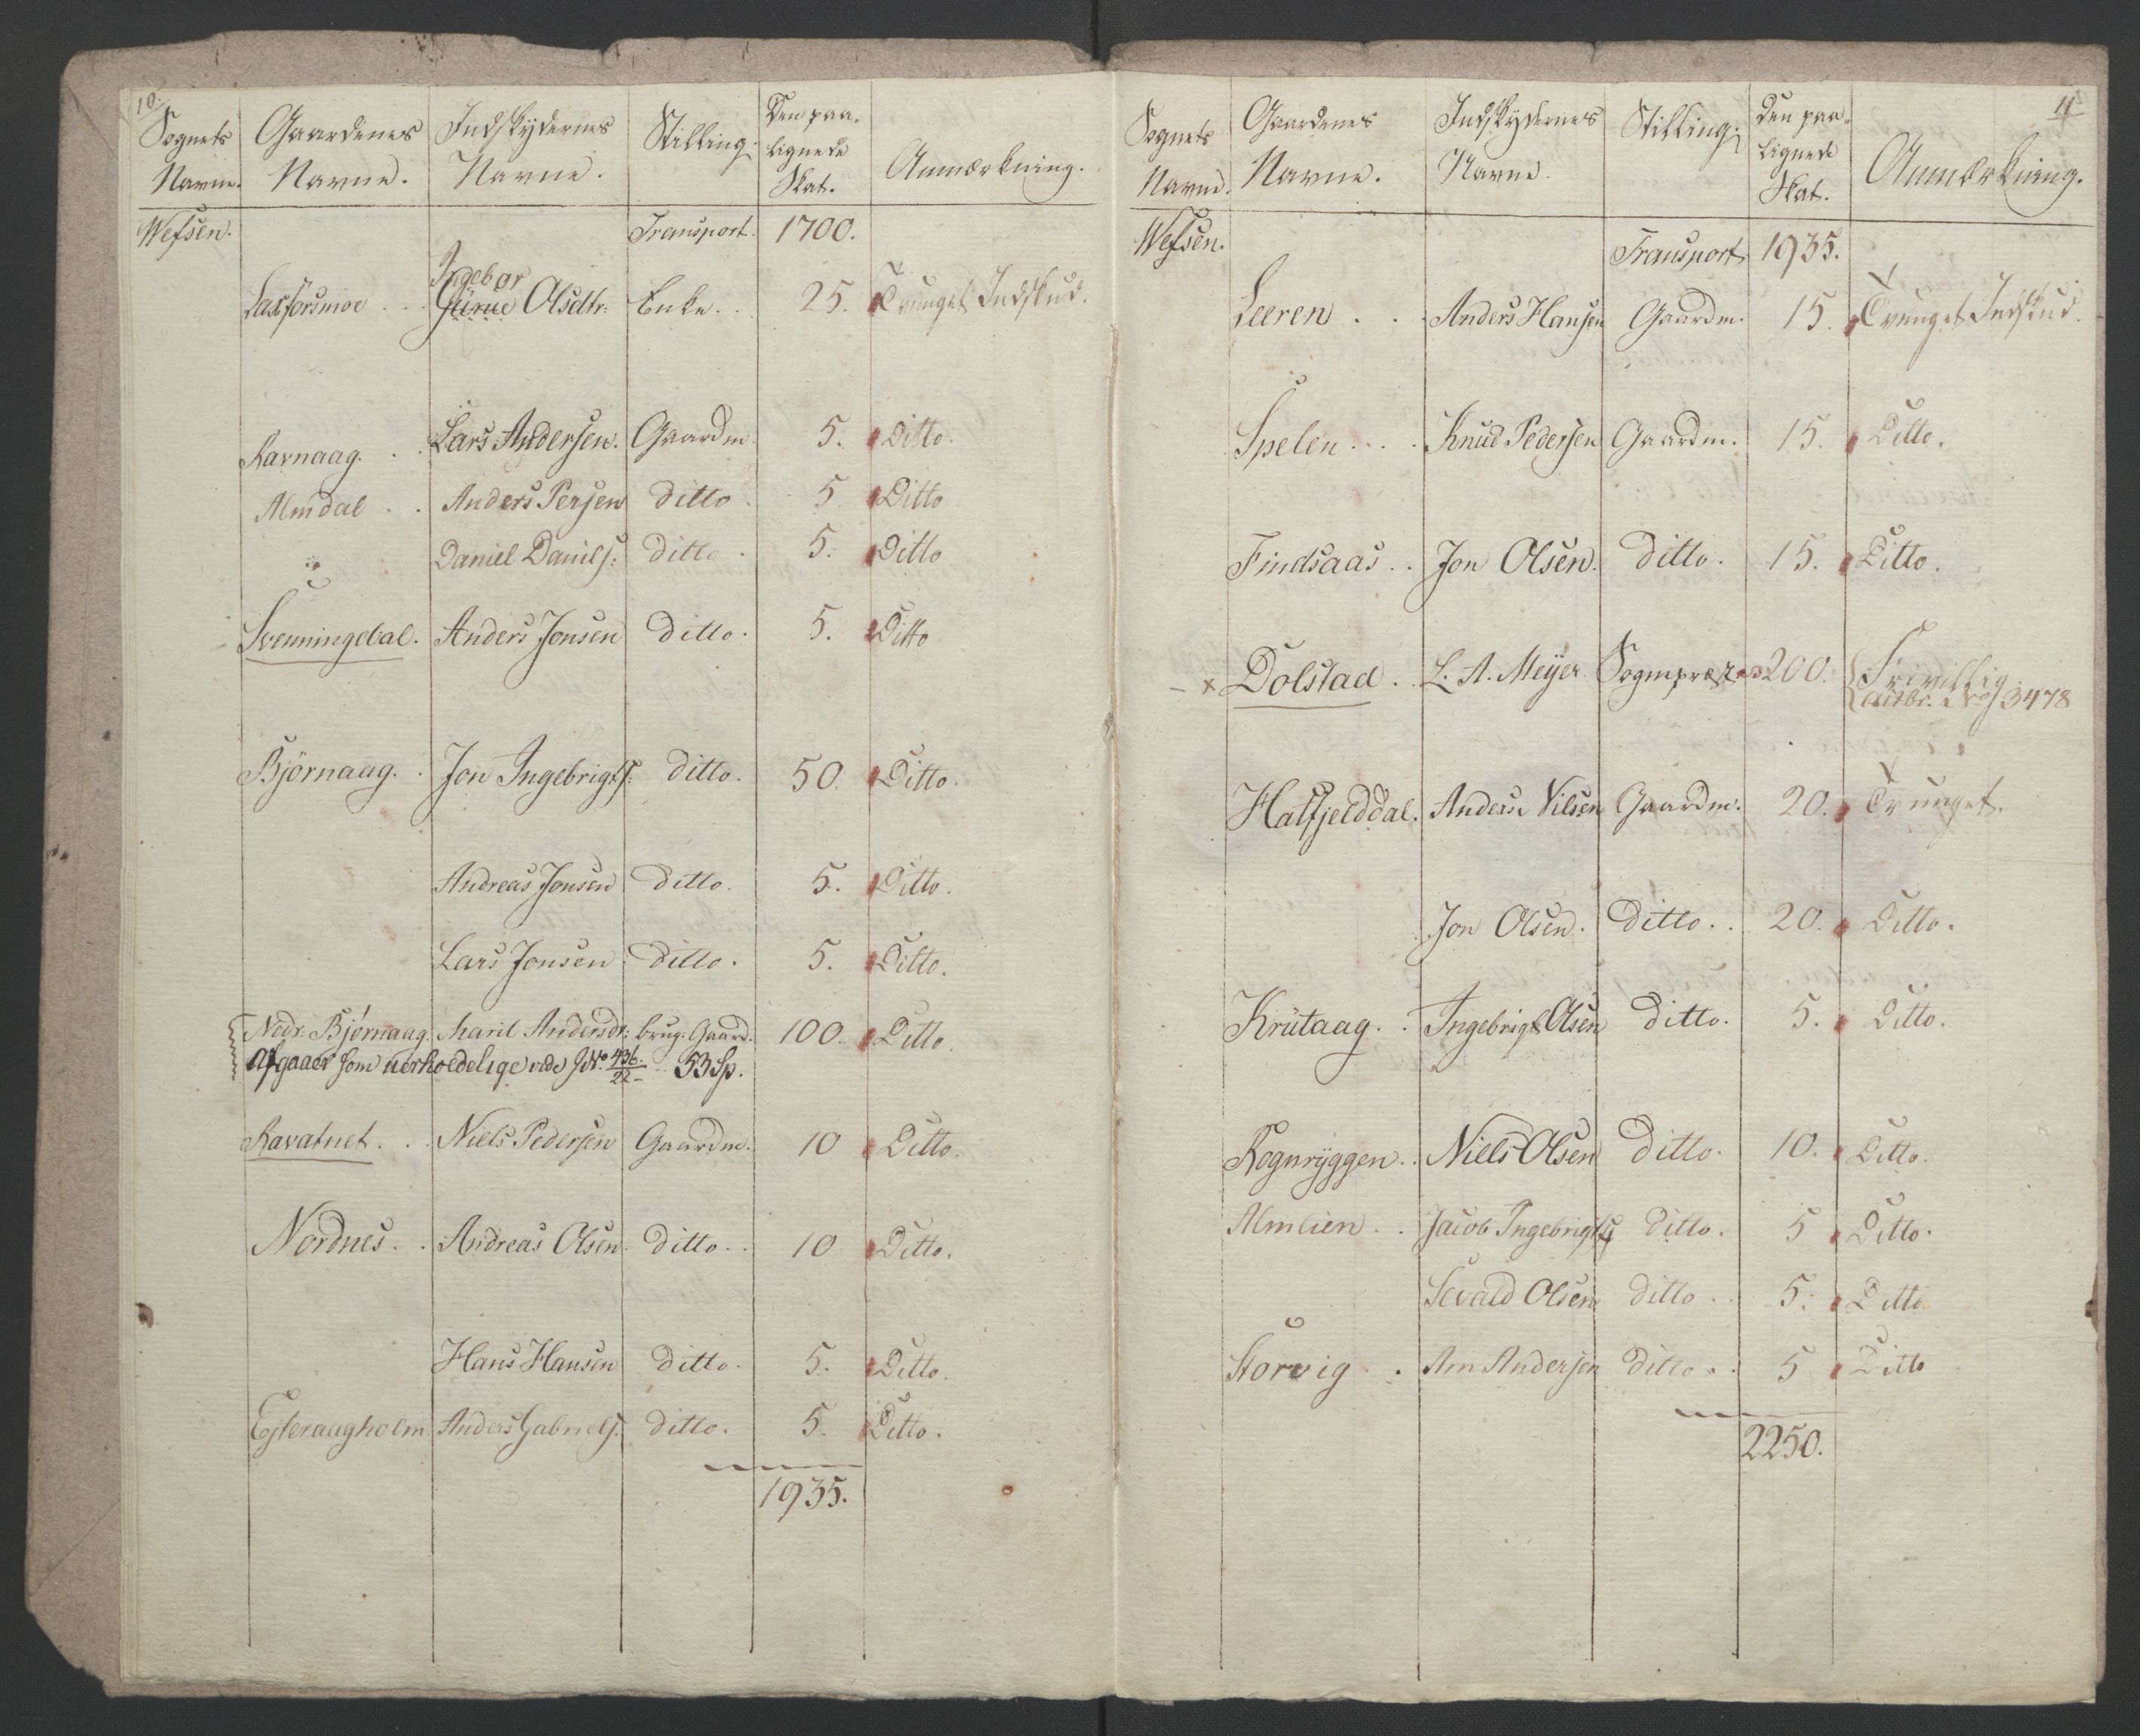 10.
Sognets Navne. Gaardenes Navne. Indskydernes Navne. Stilling. Den paalignede Skat. Anmærkning.
Wefsen. Transport. 1700.
Ingebor
Laxforsmoe . . Gürue Olsdtr: Enke . . 25. Tvunget Indskud.
Ravnaag. . . Lars Andersen. Gaardm. 5. Ditto.
Almdal . . Anders Persen ditto . 5. Ditto
" Daniel Daniels: ditto . 5. Ditto
Svenningdal. Anders Jonsen ditto. 5. Ditto
Bjørnaag. . Jon Ingebrigts: ditto. 50. Ditto.
Andreas Jonsen ditto. 5. Ditto.
Lars Jonsen. ditto. 5. Ditto.
Nedr. Bjørnaag. Marit Andersdr: brug: Gaard. 100. Ditto.
Afgaaer som uerholdelige vide J.No. 436/22 - 53 Sp.
Ravatnet. . . Niels Pedersen Gaardm. 10 Ditto.
Nordnes. . Andreas Olsen. ditto. . 10 Ditto.
Hans Hansen ditto. 5. Ditto.
Ejteraagholm Anders Gabriels. ditto. 5. Ditto.
1935.
11
Sognets Navne. Gaardenes Navne. Indskydernes Navne. Stilling. Den paalignede Skat. Anmærkning.
Wefsen. Transport 1935.
Leeren . . . Anders Hansen Gaardm. 15. Tvunget Indskud.
Spelen . . . . Knud Pedersen Gaardm. 15. Ditto.
Findsaas . . Jon Olsen. ditto. 15. Ditto.
- x Dolstad . . L. A. Meyer Sognepræst 200. Frivillig.
No 3478
Hatfjelddal. Anders Nilsen Gaardm. 20. Tvunget.
Jon Olsen. ditto. . 20. Ditto.
Krutaag. . Ingebrigt Olsen ditto. 5. Ditto.
Rognryggen. . Niels Olsen ditto. 10. Ditto.
Almlien . . Jacob Ingebrigts ditto. 5 Ditto.
Sevald Olsen ditto . . 5. Ditto
Storvig . . Arn Andersen ditto . . 5 Ditto
2250.